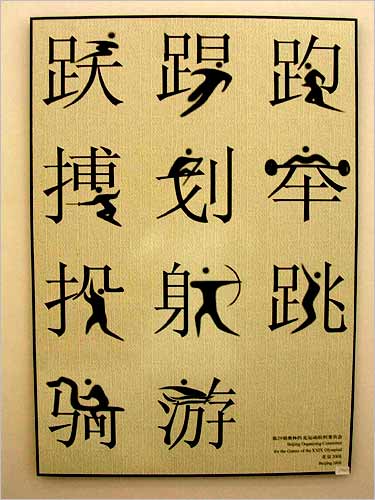 跃 踢 跑
搏 划 举
投 射 跳
骑 游
第29届奥林匹克运动会组织委员会
Beijing Organizing Committee
for the Games of the XXIX Olympiad
北京 2008
Beijing 2008